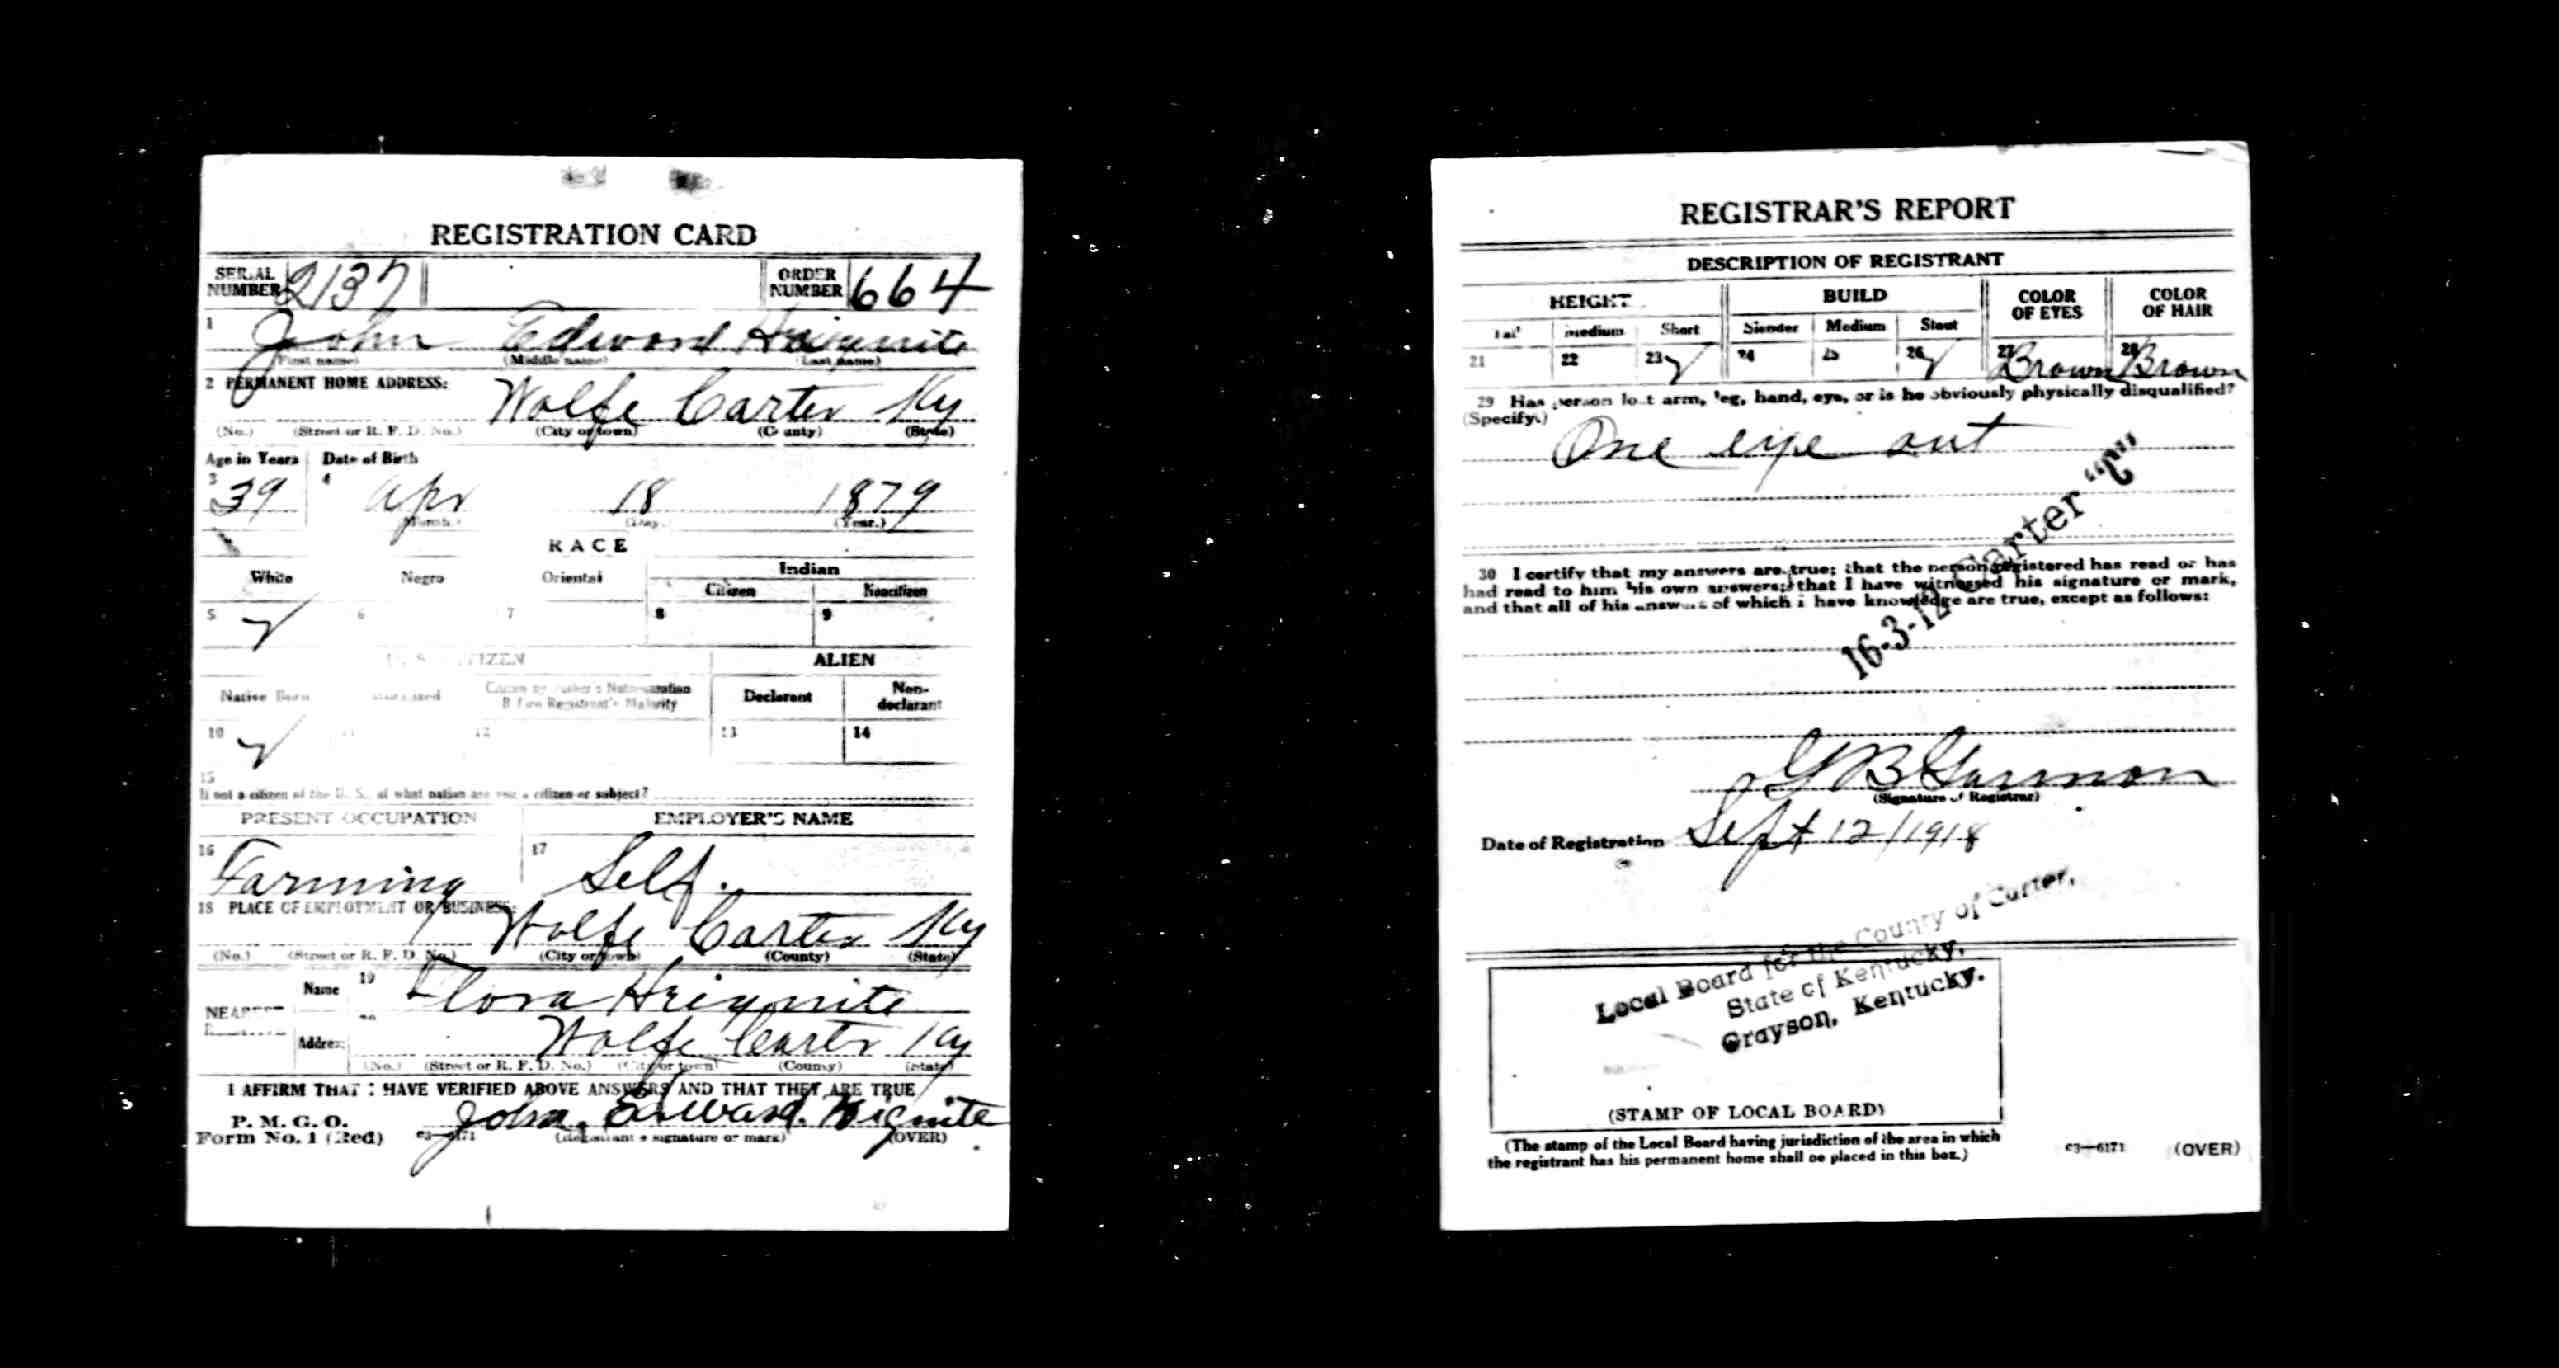 REGISTRATION CARD
SERIAL NUMBER 2137 ORDER NUMBER 664
1 John Edward
(First name) (Middle name) (Last name)
2 PERMANENT HOME ADDRESS:
Wolfe Carter Ky
(No.) (Street or R. F. D. No.) (City or town) (County) (State)
Age in Years Date of Birth
3 39 4 Apr 18 1879
(Month.) (Day.) (Year.)
RACE
White Negro Oriental Indian
Citizen Noncitizen
5 6 7 8 9
U. S. CITIZEN ALIEN
Native Born Naturalized Citizen by Father's Naturalization Before Registrant's Majority Declarant Non-declarant
10 11 12 13 14
15
If not a citizen of the U. S., of what nation are you a citizen or subject?
PRESENT OCCUPATION EMPLOYER'S NAME
16 Farming 17 Self.
18 PLACE OF EMPLOYMENT OR BUSINESS:
Wolfe Carter Ky
(No.) (Street or R. F. D. No.) (City or town) (County) (State)
NEAREST Name 19 Flora Heignite
Address Wolfe Carter Ky
(No.) (Street or R. F. D. No.) (City or town) (County) (State)
I AFFIRM THAT I HAVE VERIFIED ABOVE ANSWERS AND THAT THEY ARE TRUE
P. M. G. O.
Form No. 1 (Red) John. Edward. Hignite
(Registrant's signature or mark) (OVER)
REGISTRAR'S REPORT
DESCRIPTION OF REGISTRANT
HEIGHT BUILD COLOR OF EYES COLOR OF HAIR
Tall Medium Short Slender Medium Stout
21 22 23 24 25 26 27 Brown 28 Brown
29 Has person lost arm, leg, hand, eye, or is he obviously physically disqualified?
(Specify.) One eye out
30 I certify that my answers are true; that the person registered has read or has
had read to him his own answers; that I have witnessed his signature or mark,
and that all of his answers of which I have knowledge are true, except as follows:
16-3-12 Carter "C"
G B Garmon
(Signature of Registrar)
Date of Registration Sept 12/1918
Local Board for the County of Carter,
State of Kentucky,
Grayson, Kentucky.
(STAMP OF LOCAL BOARD)
(The stamp of the Local Board having jurisdiction of the area in which
the registrant has his permanent home shall be placed in this box.)
03—6171 (OVER)